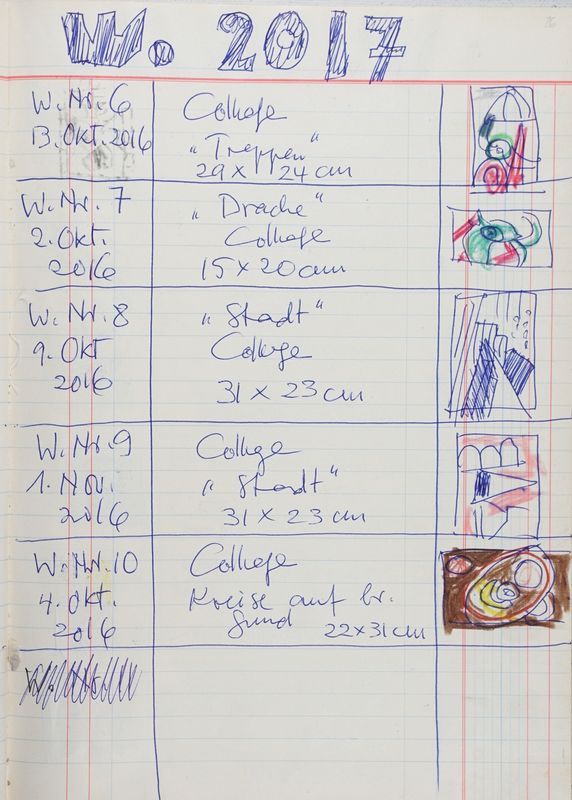 W. 2017
26
W. Nr. 6
13. Okt. 2016
Collage
„Treppen“
29 x 24 cm
W. Nr. 7
2. Okt.
2016
„Drache“
Collage
15 x 20 cm
W. Nr. 8
9. Okt
2016
„Stadt“
Collage
31 x 23 cm
W. Nr. 9
1. Nov.
2016
Collage
„Stadt“
31 x 23 cm
W. Nr. 10
4. Okt.
2016
Collage
Kreise auf br.
Grund 22x31cm